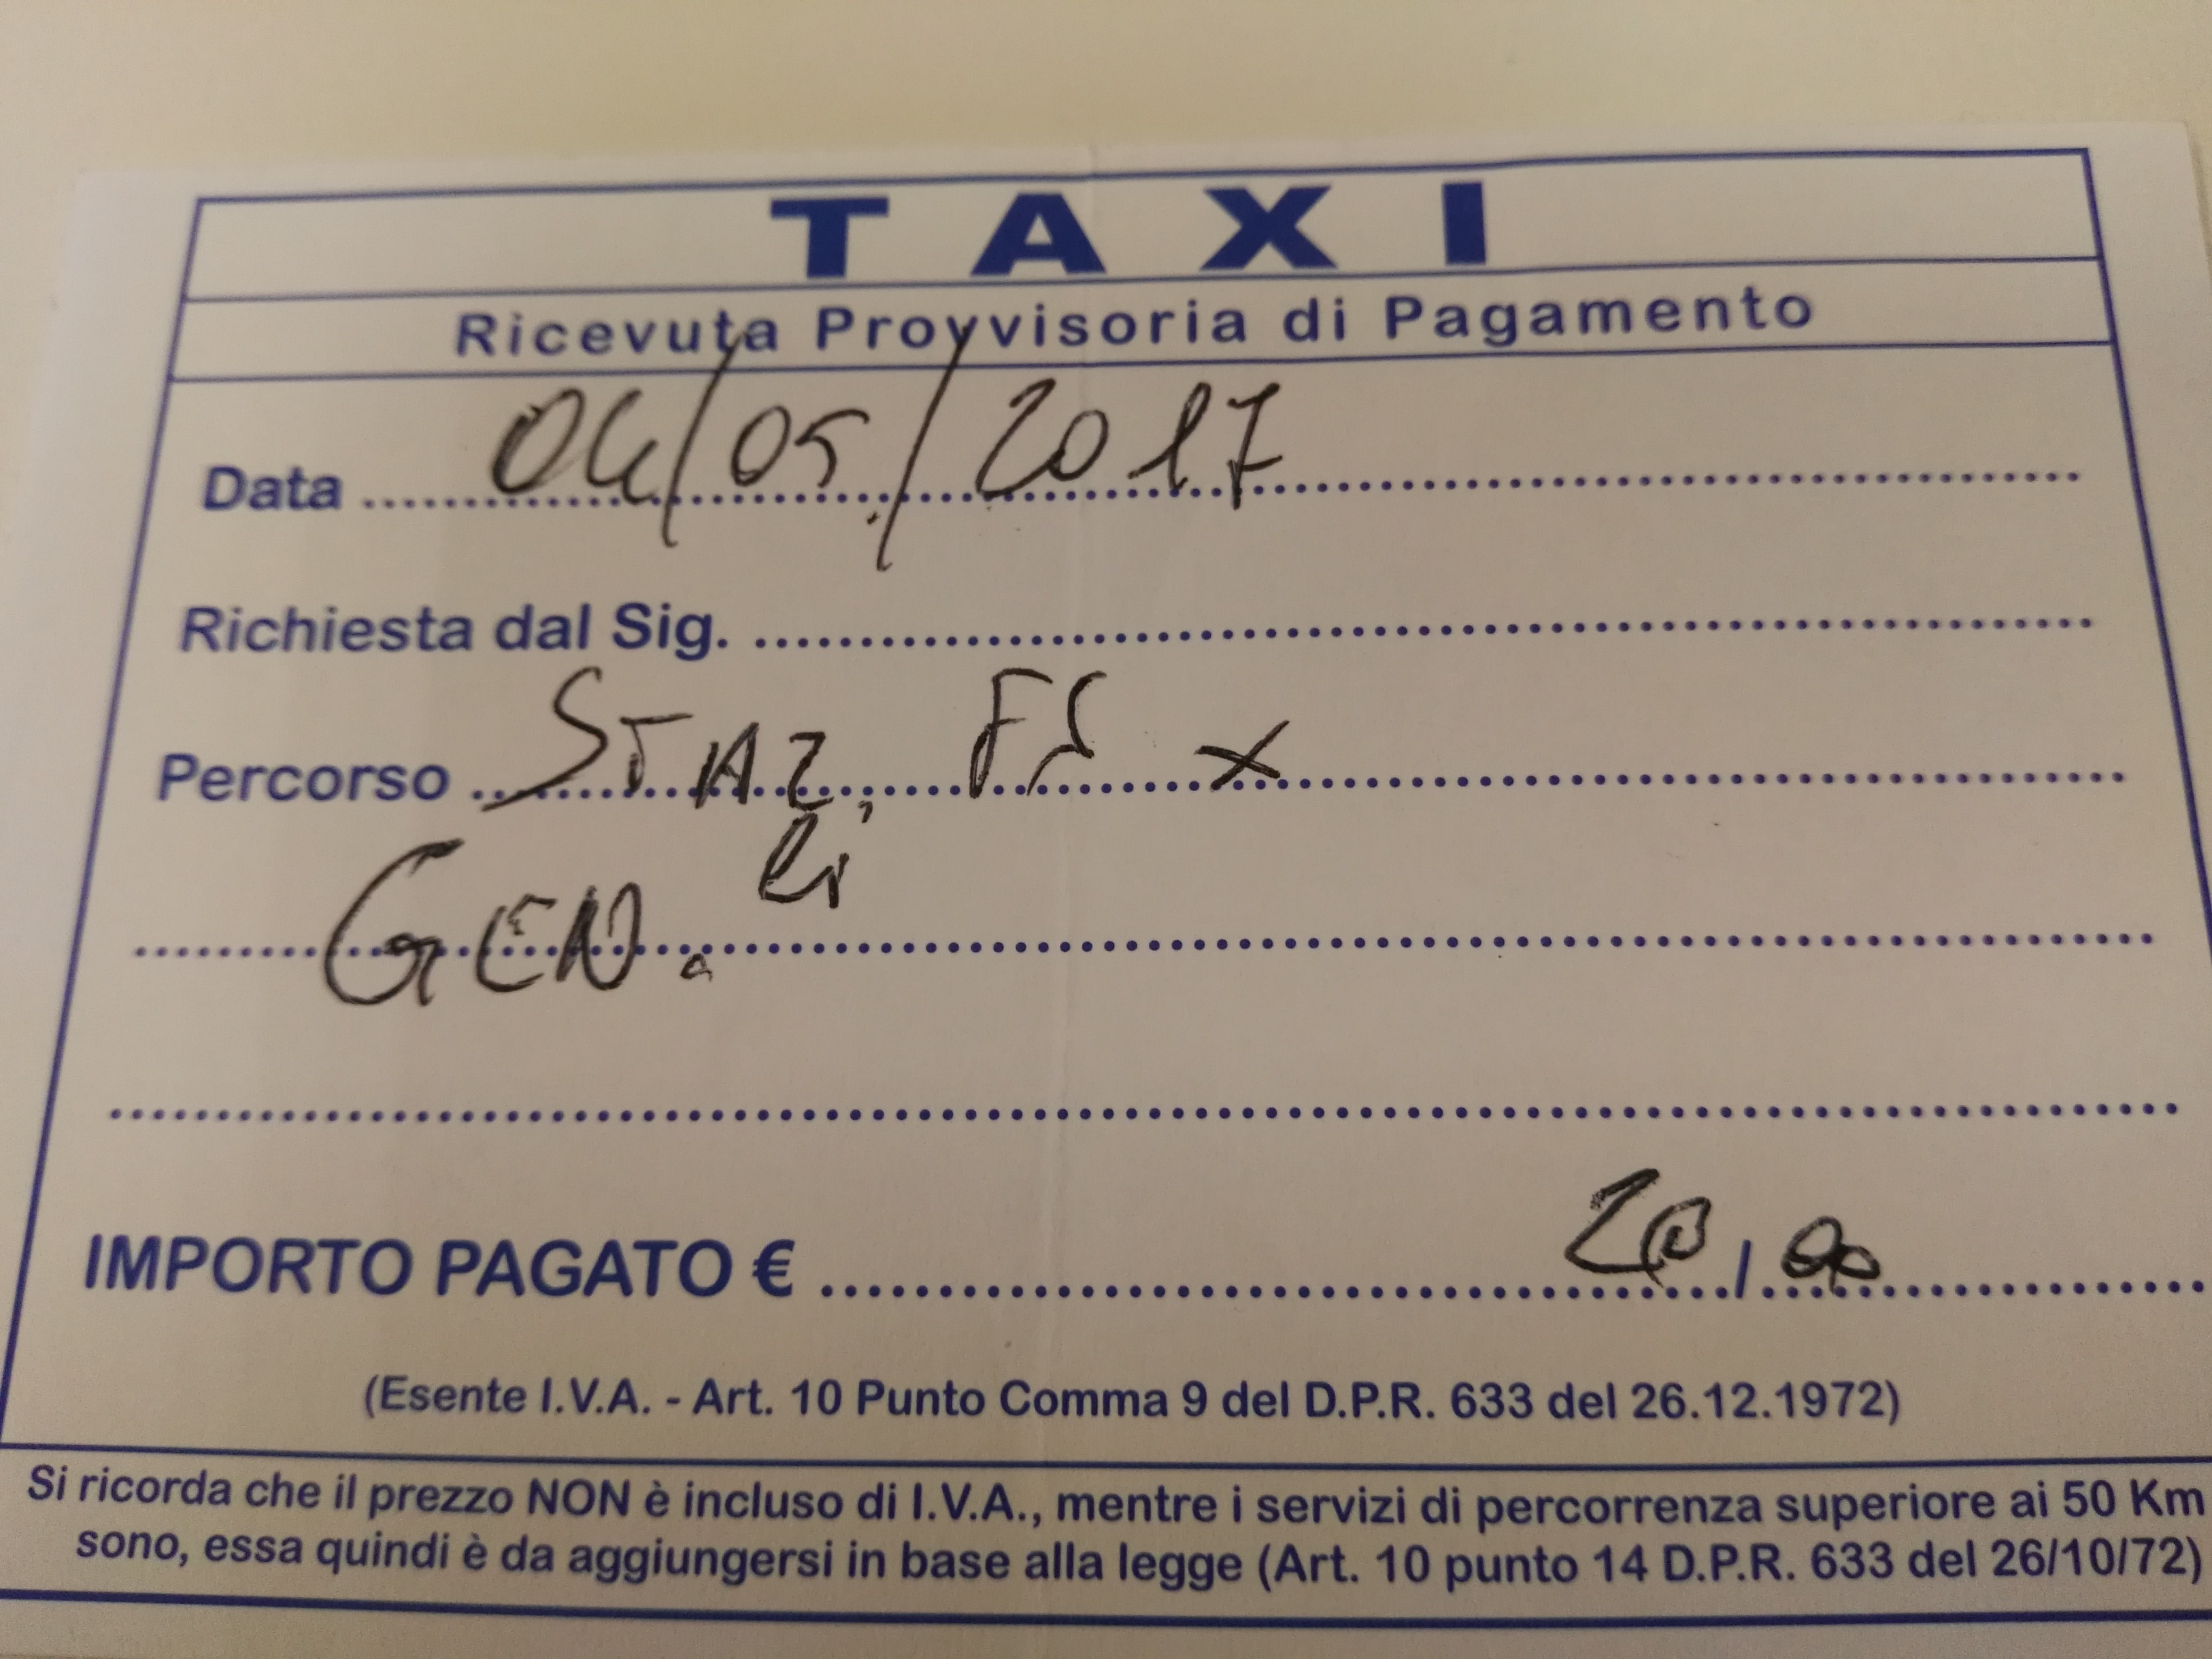 TAXI
Ricevuta Provvisoria di Pagamento
Data 04/05/2017
Richiesta dal Sig.
Percorso STAZ. FS X
GEN.li
IMPORTO PAGATO € 20,00
(Esente I.V.A. - Art. 10 Punto Comma 9 del D.P.R. 633 del 26.12.1972)
Si ricorda che il prezzo NON è incluso di I.V.A., mentre i servizi di percorrenza superiore ai 50 Km
sono, essa quindi è da aggiungersi in base alla legge (Art. 10 punto 14 D.P.R. 633 del 26/10/72)